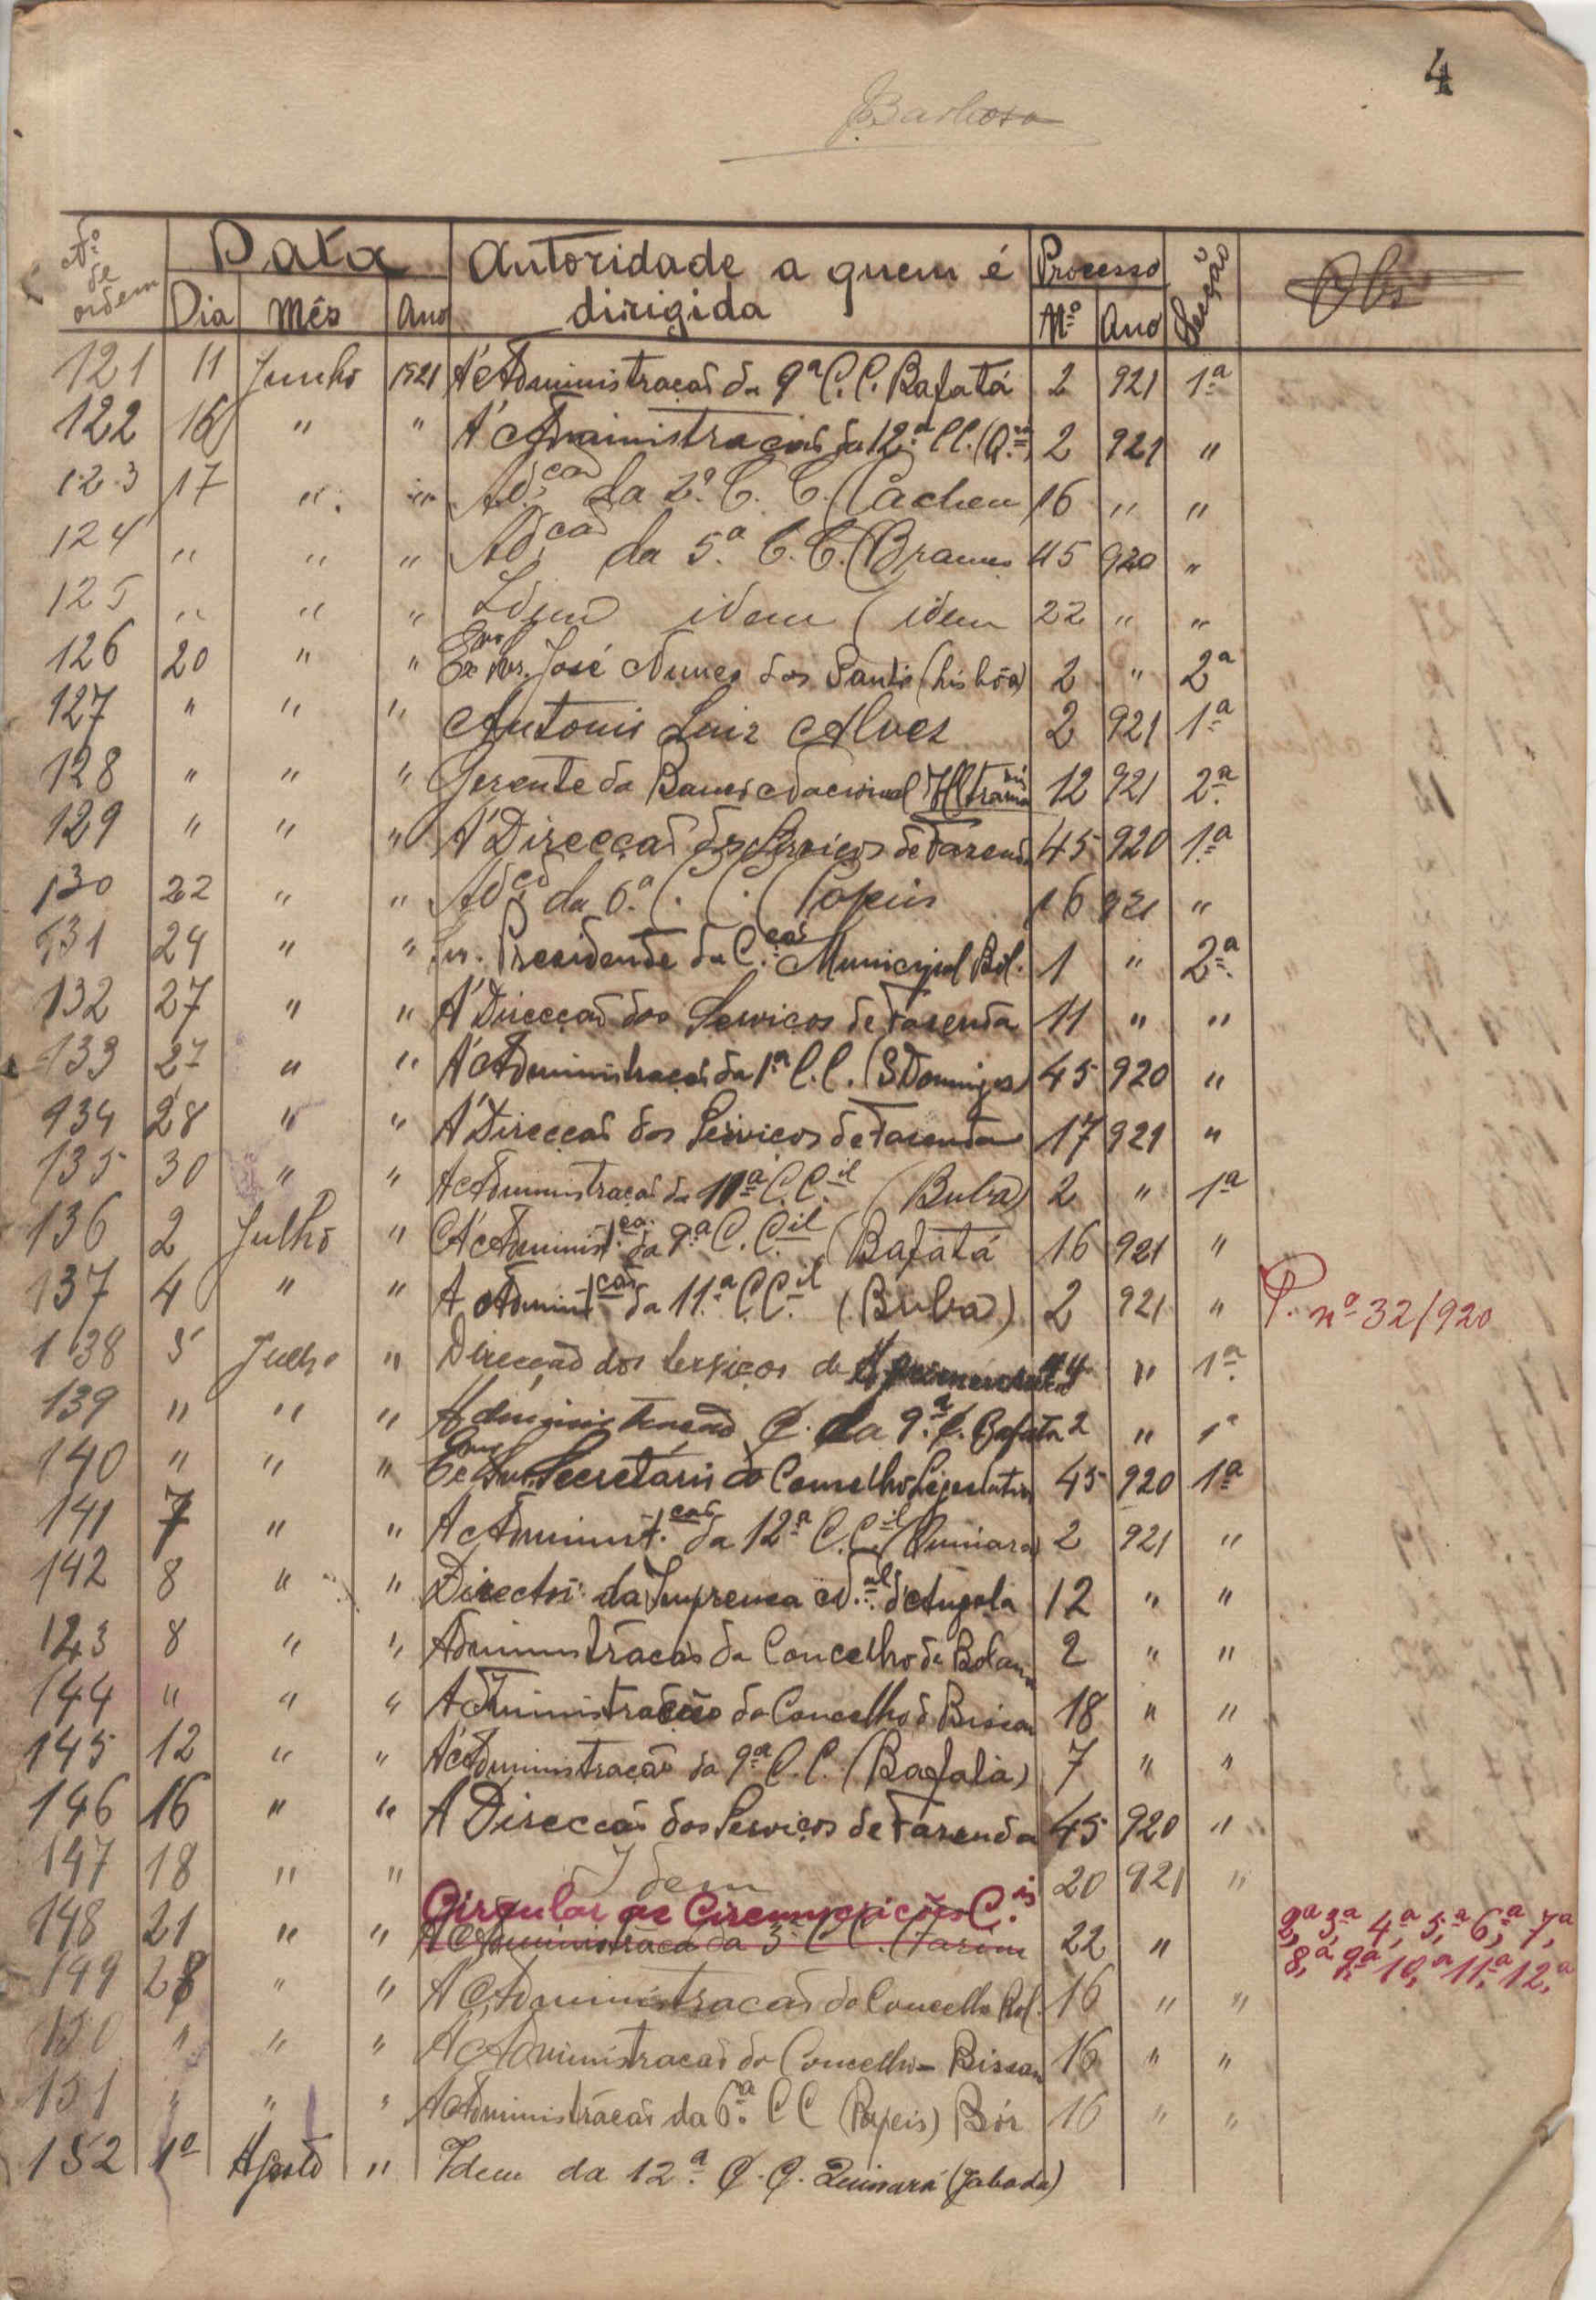 4
Barbosa
Nº de ordem | Data | Autoridade a quem é dirigida | Processo | Secção | Obs
Dia | Mês | Ano | Nº | Ano
121 11 Junho 1921 Á Administração da 9ª C. C. Bafatá 2 921 1ª
122 16 " " Á Administração da 12ª C.C. (Q.ra) 2 921 "
123 17 " " Ad.ção da 2ª C. C. (Cacheu 16 " "
124 " " " Ad.ção da 5ª C. C. (Brames 45 920 "
125 " " " Idem idem (idem 22 " "
126 20 " " Exmo Snr. José Nunes dos Santos (Lisbôa) 2 " 2ª
127 " " " Antonio Luiz Alves 2 921 1ª
128 " " " Gerente do Banco Nacional Ultramno 12 921 2ª
129 " " " Á Direcção dos Serviços de Fazenda 45 920 1ª
130 22 " " Ad.ção da 6ª C. C. (Papeis 16 921 "
131 24 " " Snr. Presidente da C.ção Municipal Bol. 1 " 2ª
132 27 " " Á Direcção dos Serviços de Fazenda 11 " "
133 27 " " Á Administração da 1ª C. C. (S Domingos) 45 920 "
134 28 " " Á Direcção dos Serviços de Fazenda 17 921 "
135 30 " " A Administração da 11ª C. C.il (Buba) 2 " 1ª
136 2 Julho " Á Administ.ção da 9ª C. C.il (Bafatá 16 921 "
137 4 " " A Administ.ção da 11ª C. C.il (Buba) 2 921 " P. nº 32/920
138 5 Julho " Direcção dos serviços de " 1ª
139 " " " Administração C. da 9ª C. Bafata 2 " 1ª
140 " " " Exmo Snr. Secretário do Conselho Legislativo 45 920 1ª
141 7 " " A Administ.ção da 12ª C. C.il (Quinara) 2 921 "
142 8 " " Director da Imprensa N.al d'Angola 12 " "
143 8 " " Administração do Concelho de Bolama 2 " "
144 " " " Administração do Concelho de Bissau 18 " "
145 12 " " Á Administração da 9ª C. C. (Bafatá) 7 " "
146 16 " " Á Direcção dos Serviços de Fazenda 45 920 "
147 18 " " Idem 20 921 "
Circular as Circunscrições C.is
148 21 " " A Administração da 3ª C C. (Farim 22 " 2ª, 3ª, 4ª, 5ª, 6ª, 7ª,
8ª, 9ª, 10ª, 11ª, 12ª
149 28 " " Á Administração do Concelho Bol. 16 " "
150 " " " Á Administração do Concelho - Bissau 16 " "
151 " " " A Administração da 6ª C C (Papeis) Bór 16 " "
152 1º Agosto " Idem da 12ª C. C. Quinará (Jabada)